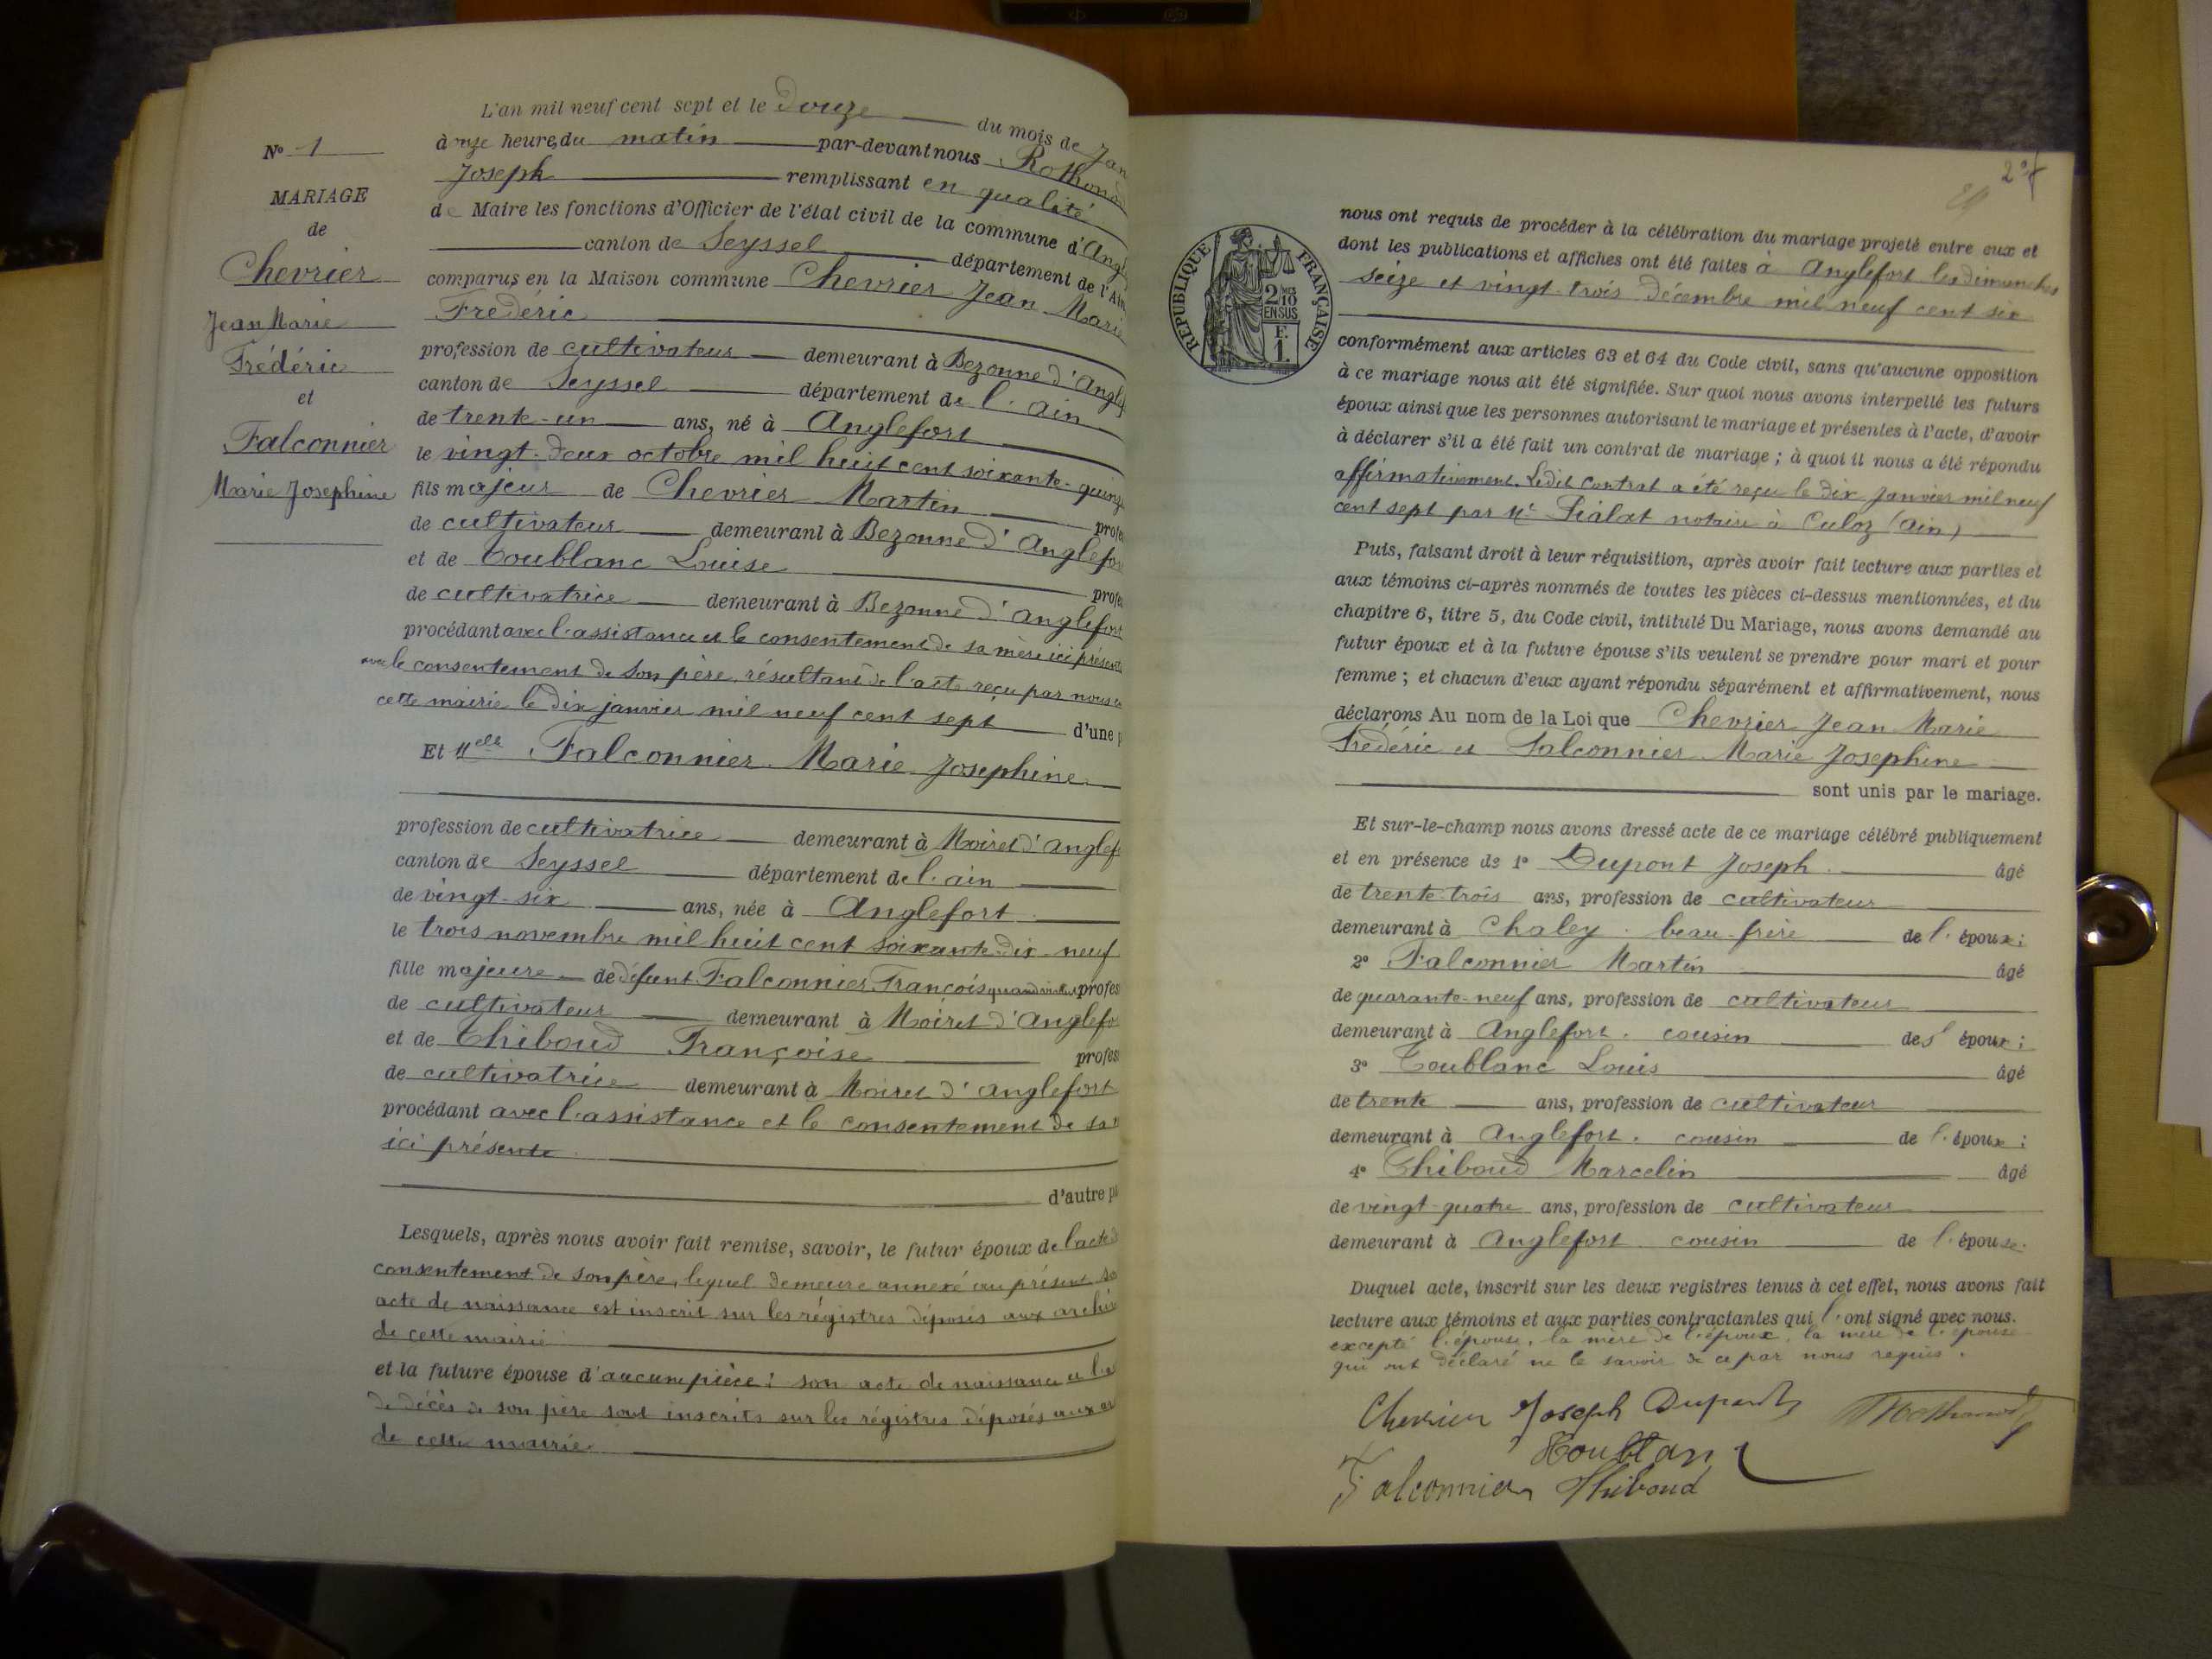 N° 1
MARIAGE
de
Chevrier
Jean Marie
Frédéric
et
Falconnier
Marie Josephine
L'an mil neuf cent sept et le douze du mois de Jan
à onze heures du matin par-devant nous Rothonod
Joseph remplissant en qualité
de Maire les fonctions d'Officier de l'état civil de la commune d'Angl
canton de Seyssel département de l'Ain
comparus en la Maison commune Chevrier Jean Marie
Frédéric
profession de cultivateur demeurant à Bezonne d'Anglef
canton de Seyssel département de l'Ain
de trente-un ans, né à Anglefort
le vingt-deux octobre mil huit cent soixante-quinze
fils majeur de Chevrier Martin profe
de cultivateur demeurant à Bezonne d'Anglefor
et de Toublanc Louise profe
de cultivatrice demeurant à Bezonne d'Anglefort
procédant avec l'assistance et le consentement de sa mère ici présente
avec le consentement de son père, résultant de l'acte reçu par nous en
cette mairie le dix janvier mil neuf cent sept d'une p
Et Melle Falconnier Marie Josephine
profession de cultivatrice demeurant à Moiret d'Anglef
canton de Seyssel département de l'ain
de vingt-six ans, née à Anglefort
le trois novembre mil huit cent soixante-dix-neuf
fille majeure de défunt Falconnier François quand vivait profes
de cultivateur demeurant à Moiret d'Anglefo
et de Thiboud Françoise profes
de cultivatrice demeurant à Moiret d'Anglefort
procédant avec l'assistance et le consentement de sa
ici présente
d'autre pa
Lesquels, après nous avoir fait remise, savoir, le futur époux de l'acte de
consentement de son père, lequel demeure annexé au présent, so
acte de naissance est inscrit sur les régistres déposés aux archiv
de cette mairie
et la future épouse d'aucune pièce : son acte de naissance et l'ac
de décès de son père sont inscrits sur les régistres déposés aux ar
de cette mairie.
2
RÉPUBLIQUE FRANÇAISE
2 10
EN SUS
F.
1.
nous ont requis de procéder à la célébration du mariage projeté entre eux et
dont les publications et affiches ont été faites à Anglefort les dimanches
seize et vingt-trois décembre mil neuf cent six
conformément aux articles 63 et 64 du Code civil, sans qu'aucune opposition
à ce mariage nous ait été signifiée. Sur quoi nous avons interpellé les futurs
époux ainsi que les personnes autorisant le mariage et présentes à l'acte, d'avoir
à déclarer s'il a été fait un contrat de mariage ; à quoi il nous a été répondu
affirmativement. Ledit contrat a été reçu le dix Janvier mil neuf
cent sept par Me Pialat notaire à Culoz (Ain)
Puis, faisant droit à leur réquisition, après avoir fait lecture aux parties et
aux témoins ci-après nommés de toutes les pièces ci-dessus mentionnées, et du
chapitre 6, titre 5, du Code civil, intitulé Du Mariage, nous avons demandé au
futur époux et à la future épouse s'ils veulent se prendre pour mari et pour
femme ; et chacun d'eux ayant répondu séparément et affirmativement, nous
déclarons Au nom de la Loi que Chevrier Jean Marie
Frédéric et Falconnier Marie Josephine
sont unis par le mariage.
Et sur-le-champ nous avons dressé acte de ce mariage célébré publiquement
et en présence de 1° Dupont Joseph âgé
de trente-trois ans, profession de cultivateur
demeurant à Chaley beau-frère de l'époux ;
2° Falconnier Martin âgé
de quarante-neuf ans, profession de cultivateur
demeurant à Anglefort, cousin des époux ;
3° Toublanc Louis âgé
de trente ans, profession de cultivateur
demeurant à Anglefort, cousin de l'époux ;
4° Thiboud Marcelin âgé
de vingt-quatre ans, profession de cultivateur
demeurant à Anglefort cousin de l'épouse.
Duquel acte, inscrit sur les deux registres tenus à cet effet, nous avons fait
lecture aux témoins et aux parties contractantes qui l'ont signé avec nous.
excepté l'épouse, la mère de l'époux, la mère de l'épouse
qui ont déclaré ne le savoir de ce par nous requis.
Chevrier Joseph Dupont Rothonod
Toublanc
Falconnier Thiboud